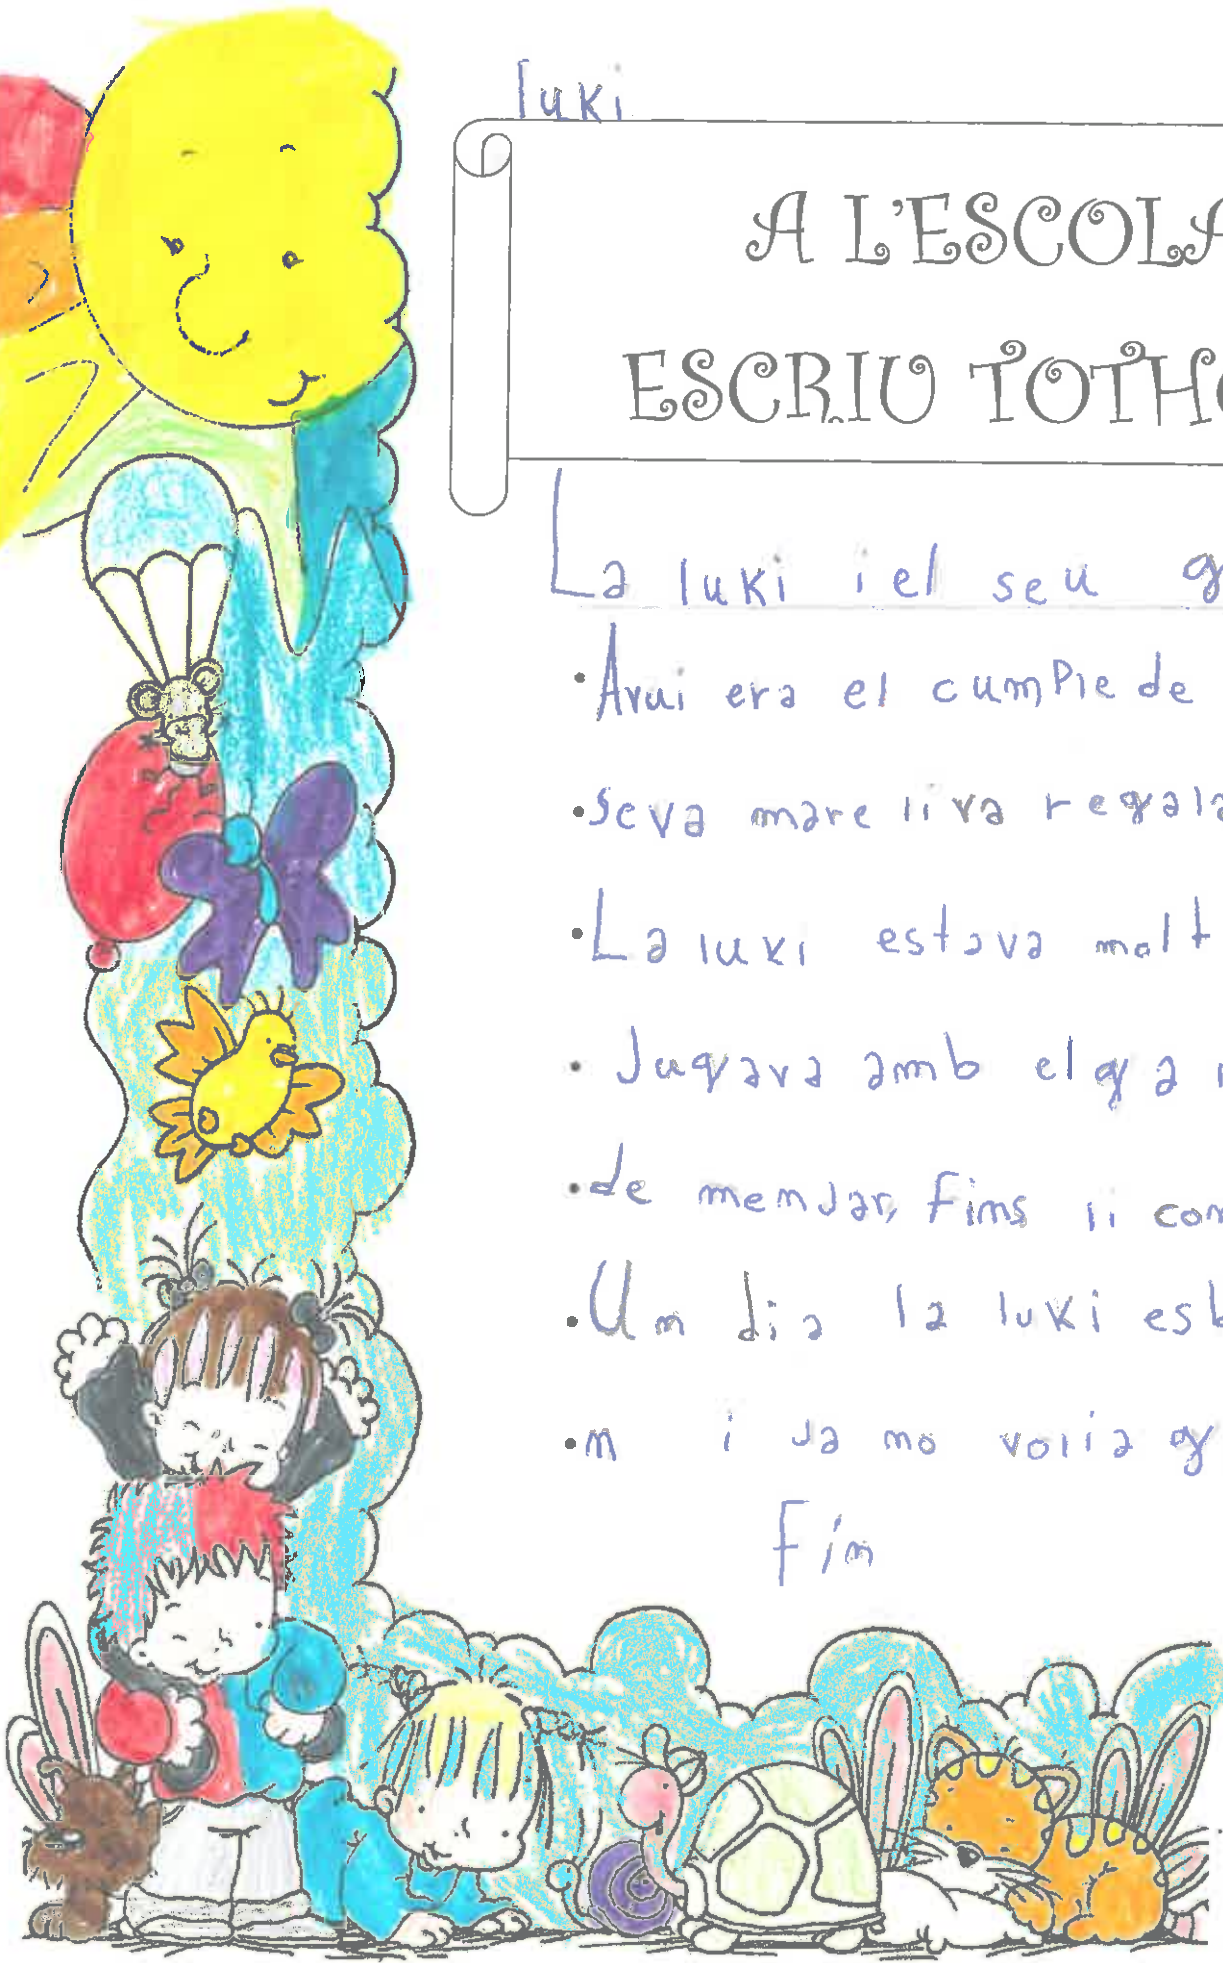 luki
A L'ESCOLA
ESCRIU TOTH
La luki i el seu g
Avui era el cumPle de
seva mare li va regala
La luki estava molt
Jugava amb el ga
de menJar, Fins li con
Un dia la luki esb
m i Ja mo volia g
Fin